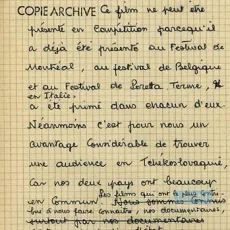 COPIE ARCHIVE Ce film ne peut être
présenté en Compétition parcequ'il
a déjà été présenté au Festival de
Montréal, au festival de Belgique
et au Festival de Loretta Terme,
en Italie.
a été primé dans chacun d'eux
Néanmoins c'est pour nous un
avantage Considérable de trouver
une audience en Tchekoslovaquie,
Car nos deux pays ont beaucoup
en Commun. Les films qui ont le plus contri-
Nous sommes connus
bué à nous faire connaître, nos documentaires,
surtout par nos documentaires